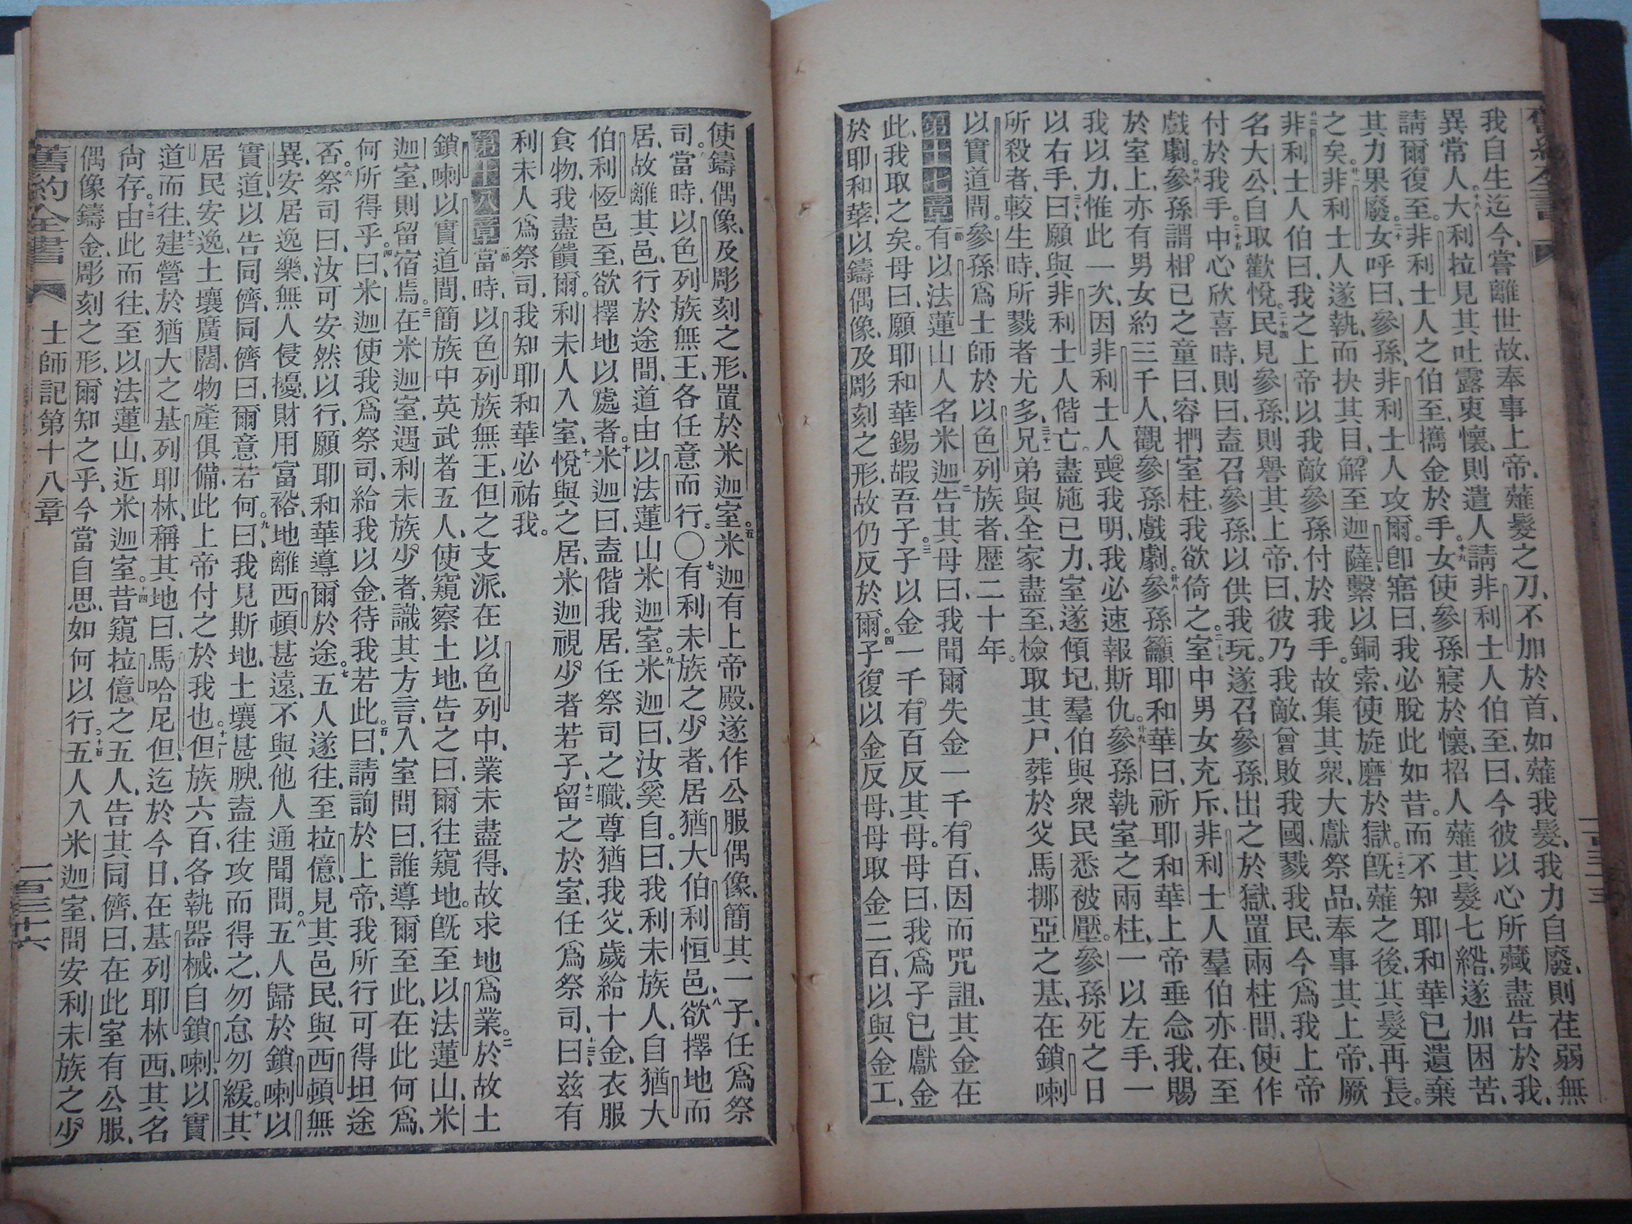 我自生迄今、嘗離世故、奉事上帝、薙髮之刀、不加於首、如薙我髮、我力自廢、則荏弱無
異常人、十八大利拉見其吐露衷懷、則遣人請非利士人伯至、曰、今彼以心所藏盡告於我、
請爾復至、非利士人之伯至、攜金於手。十九女使參孫寢於懷、招人薙其髮七綹、遂加困苦、
其力果廢、女呼曰、參孫、非利士人攻爾、卽寤曰、我必脫此如昔、而不知耶和華已遺棄
之矣。非利士人遂執而抉其目、解至迦薩、繫以銅索、使旋磨於獄。旣薙之後、其髮再長。
非利士人伯曰、我之上帝、以我敵參孫付於我手。故集其眾、大獻祭品、奉事其上帝、厥
名大公、自取歡悅。二十四民見參孫、則譽其上帝、曰、彼乃我敵、曾敗我國、戮我民、今爲我上帝
付於我手。二十五中心欣喜時、則曰、盍召參孫、以供我玩、遂召參孫、出之於獄、置兩柱間、使作
戲劇。參孫謂相己之童曰、容捫室柱、我欲倚之。二十七室中男女充斥、非利士人羣伯亦在、至
於室上、亦有男女約三千人、觀參孫戲劇。參孫籲耶和華曰、祈耶和華上帝垂念我、賜
我以力、惟此一次、因非利士人喪我明、我必速報斯仇。參孫執室之兩柱、一以左手、一
以右手、曰、願與非利士人偕亡。盡施己力、室遂傾圮、羣伯與眾民悉被壓。參孫死之日
所殺者、較生時所戮者尤多。三十一兄弟與全家盡至、檢取其尸、葬於父馬挪亞之墓、在鎖喇
以實道間。參孫爲士師於以色列族者、歷二十年。
第十七章 一節有以法蓮山人名米迦、二告其母曰、我聞爾失金一千有百、因而咒詛、其金在
此、我取之矣。母曰、願耶和華錫嘏吾子。三子以金一千有百反其母。母曰、我爲子已獻金
於耶和華、以鑄偶像、及彫刻之形、故仍反於爾。四子復以金反母、母取金二百、以與金工、
使鑄偶像、及彫刻之形、置於米迦室。五米迦有上帝殿、遂作公服偶像、簡其一子、任爲祭
司。當時、以色列族無王、各任意而行。〇七有利未族之少者、居猶大伯利恒邑。八欲擇地而
居、故離其邑、行於途間、道由以法蓮山米迦室。九米迦曰、汝奚自。曰、我利未族人、自猶大
伯利恆邑至、欲擇地以處者。十米迦曰、盍偕我居、任祭司之職、尊猶我父、歲給十金、衣服
食物、我盡饋爾。利未人入室、十一悅與之居、米迦視少者若子、留之於室、任爲祭司、十三曰、茲有
利未人爲祭司、我知耶和華必祐我。
第十八章 一節當時、以色列族無王、但之支派、在以色列中、業未盡得、故求地爲業。二於故土
鎖喇以實道間、簡族中英武者五人、使窺察土地、告之曰、爾往窺地。旣至以法蓮山米
迦室、則留宿焉。三在米迦室、遇利未族少者、識其方言、入室問曰、誰導爾至此、在此何爲、
何所得乎。四曰、米迦使我爲祭司、給我以金、待我若此。五曰、請詢於上帝、我所行可得坦途
否。六祭司曰、汝可安然以行、願耶和華導爾於途。七五人遂往、至拉億、見其邑民、與西頓無
異、安居逸樂、無人侵擾、財用富裕、地離西頓甚遠、不與他人通聞問。八五人歸於鎖喇以
實道、以告同儕、同儕曰、爾意若何。九曰、我見斯地、土壤甚腴、盍往攻而得之、勿怠勿緩。十其
居民安逸、土壤廣闊、物產俱備、此上帝付之於我也。十一但族六百、各執器械、自鎖喇以實
道而往、十二建營於猶大之基列耶林、稱其地曰馬哈尼但、迄於今日、在基列耶林西、其名
尙存。十三由此而往、至以法蓮山、近米迦室。十四昔窺拉億之五人、告其同儕曰、在此室有公服、
偶像鑄金、彫刻之形、爾知之乎、今當自思、如何以行。十五五人入米迦室、問安利未族之少
舊約全書 士師記第十八章 一百三十六